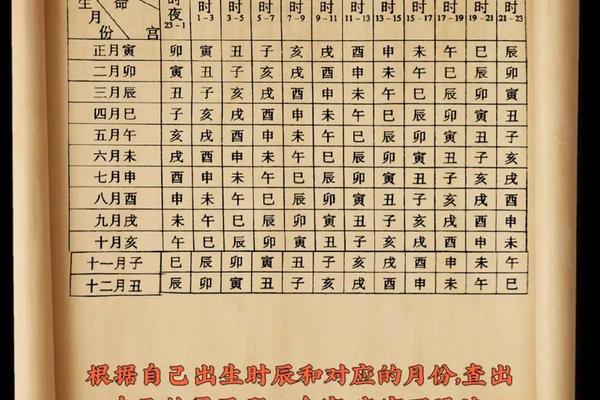 生 命
月
份 宫
时 时 时 时 时 时 时 时 时 时 时 时
夜
23-1 1-3 3-5 5-7 7-9 9-11 11-13 13-15 15-17 17-19 19-21 21-23
正月寅 卯 寅 丑 子 亥 戌 酉 申 未 午 巳 辰
二月卯 寅 丑 子 亥 戌 酉 申 未 午 巳 辰 卯
三月辰 丑 子 亥 戌 酉 申 未 午 巳 辰 卯 寅
四月巳 子 亥 戌 酉 申 未 午 巳 辰 卯 寅 丑
五月午 亥 戌 酉 申 未 午 巳 辰 卯 寅 丑 子
六月未 戌 酉 申 未 午 巳 辰 卯 寅 丑 子 亥
七月申 酉 申 未 午 巳 辰 卯 寅 丑 子 亥 戌
八月酉 申 未 午 巳 辰 卯 寅 丑 子 亥 戌 酉
九月戌 未 午 巳 辰 卯 寅 丑 子 亥 戌 酉 申
十月亥 午 巳 辰 卯 寅 丑 子 亥 戌 酉 申 未
十一月子 巳 辰 卯 寅 丑 子 亥 戌 酉 申 未 午
十二月丑 辰 卯 寅 丑 子 亥 戌 酉 申 未 午 巳
根据自己出生时辰和对应的月份,查出